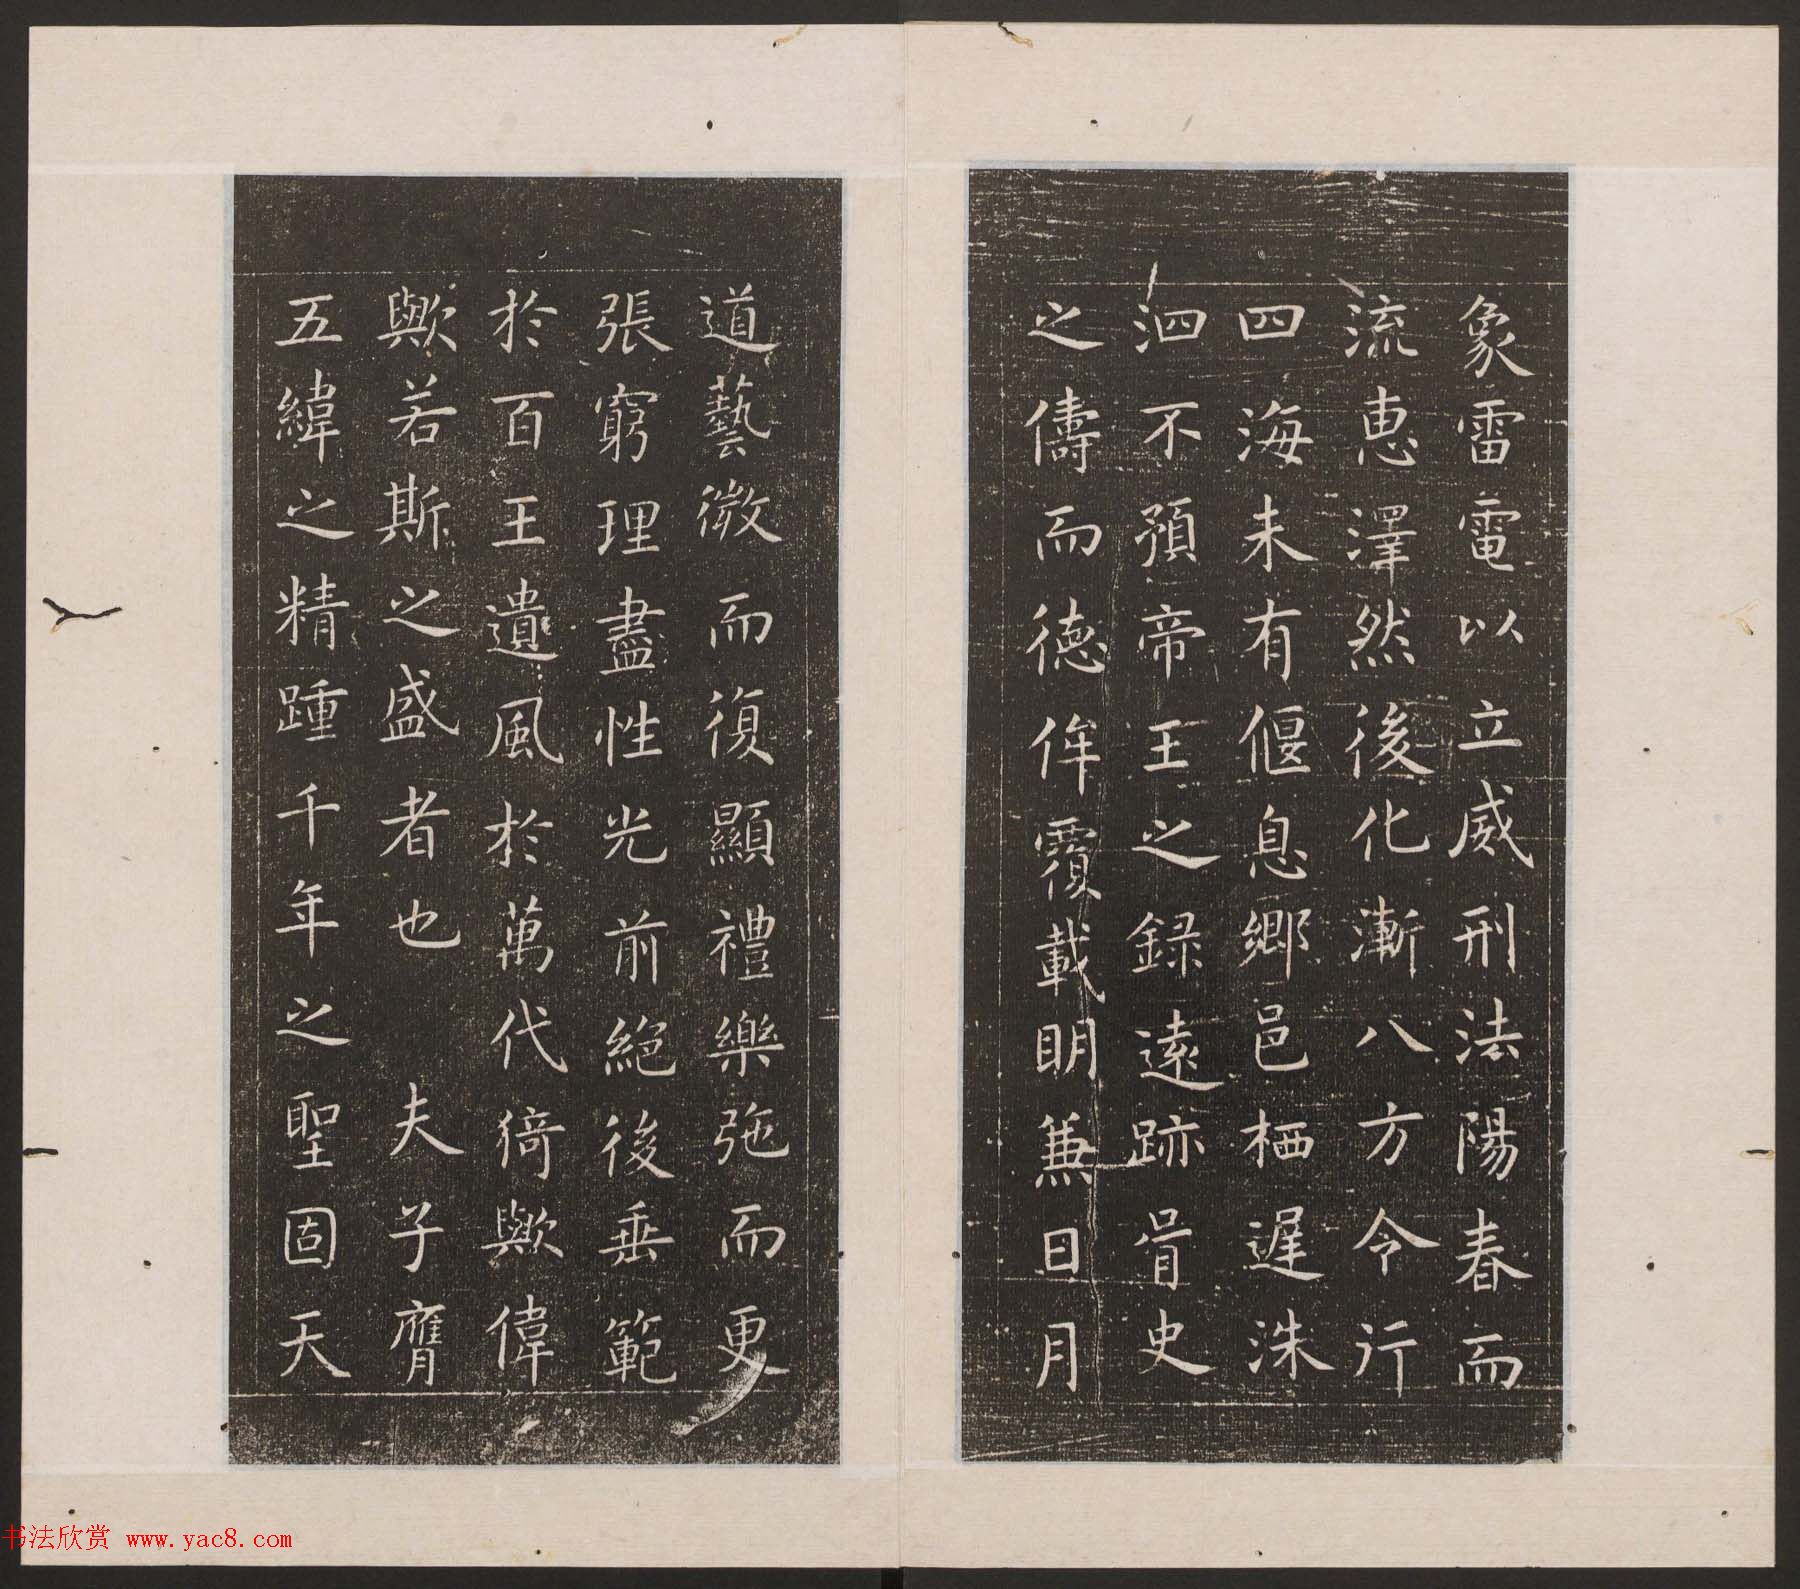 象雷電以立威刑法陽春而
流恵澤然後化漸八方令行
四海未有偃息郷邑栖遲洙
泗不預帝王之録遠跡胥史
之儔而徳侔覆載明兼日月
道藝微而復顯禮樂弛而更
張窮理盡性光前絶後垂範
於百王遺風於萬代猗歟偉
歟若斯之盛者也 夫子膺
五緯之精踵千年之聖固天
书法欣赏 www.yac8.com